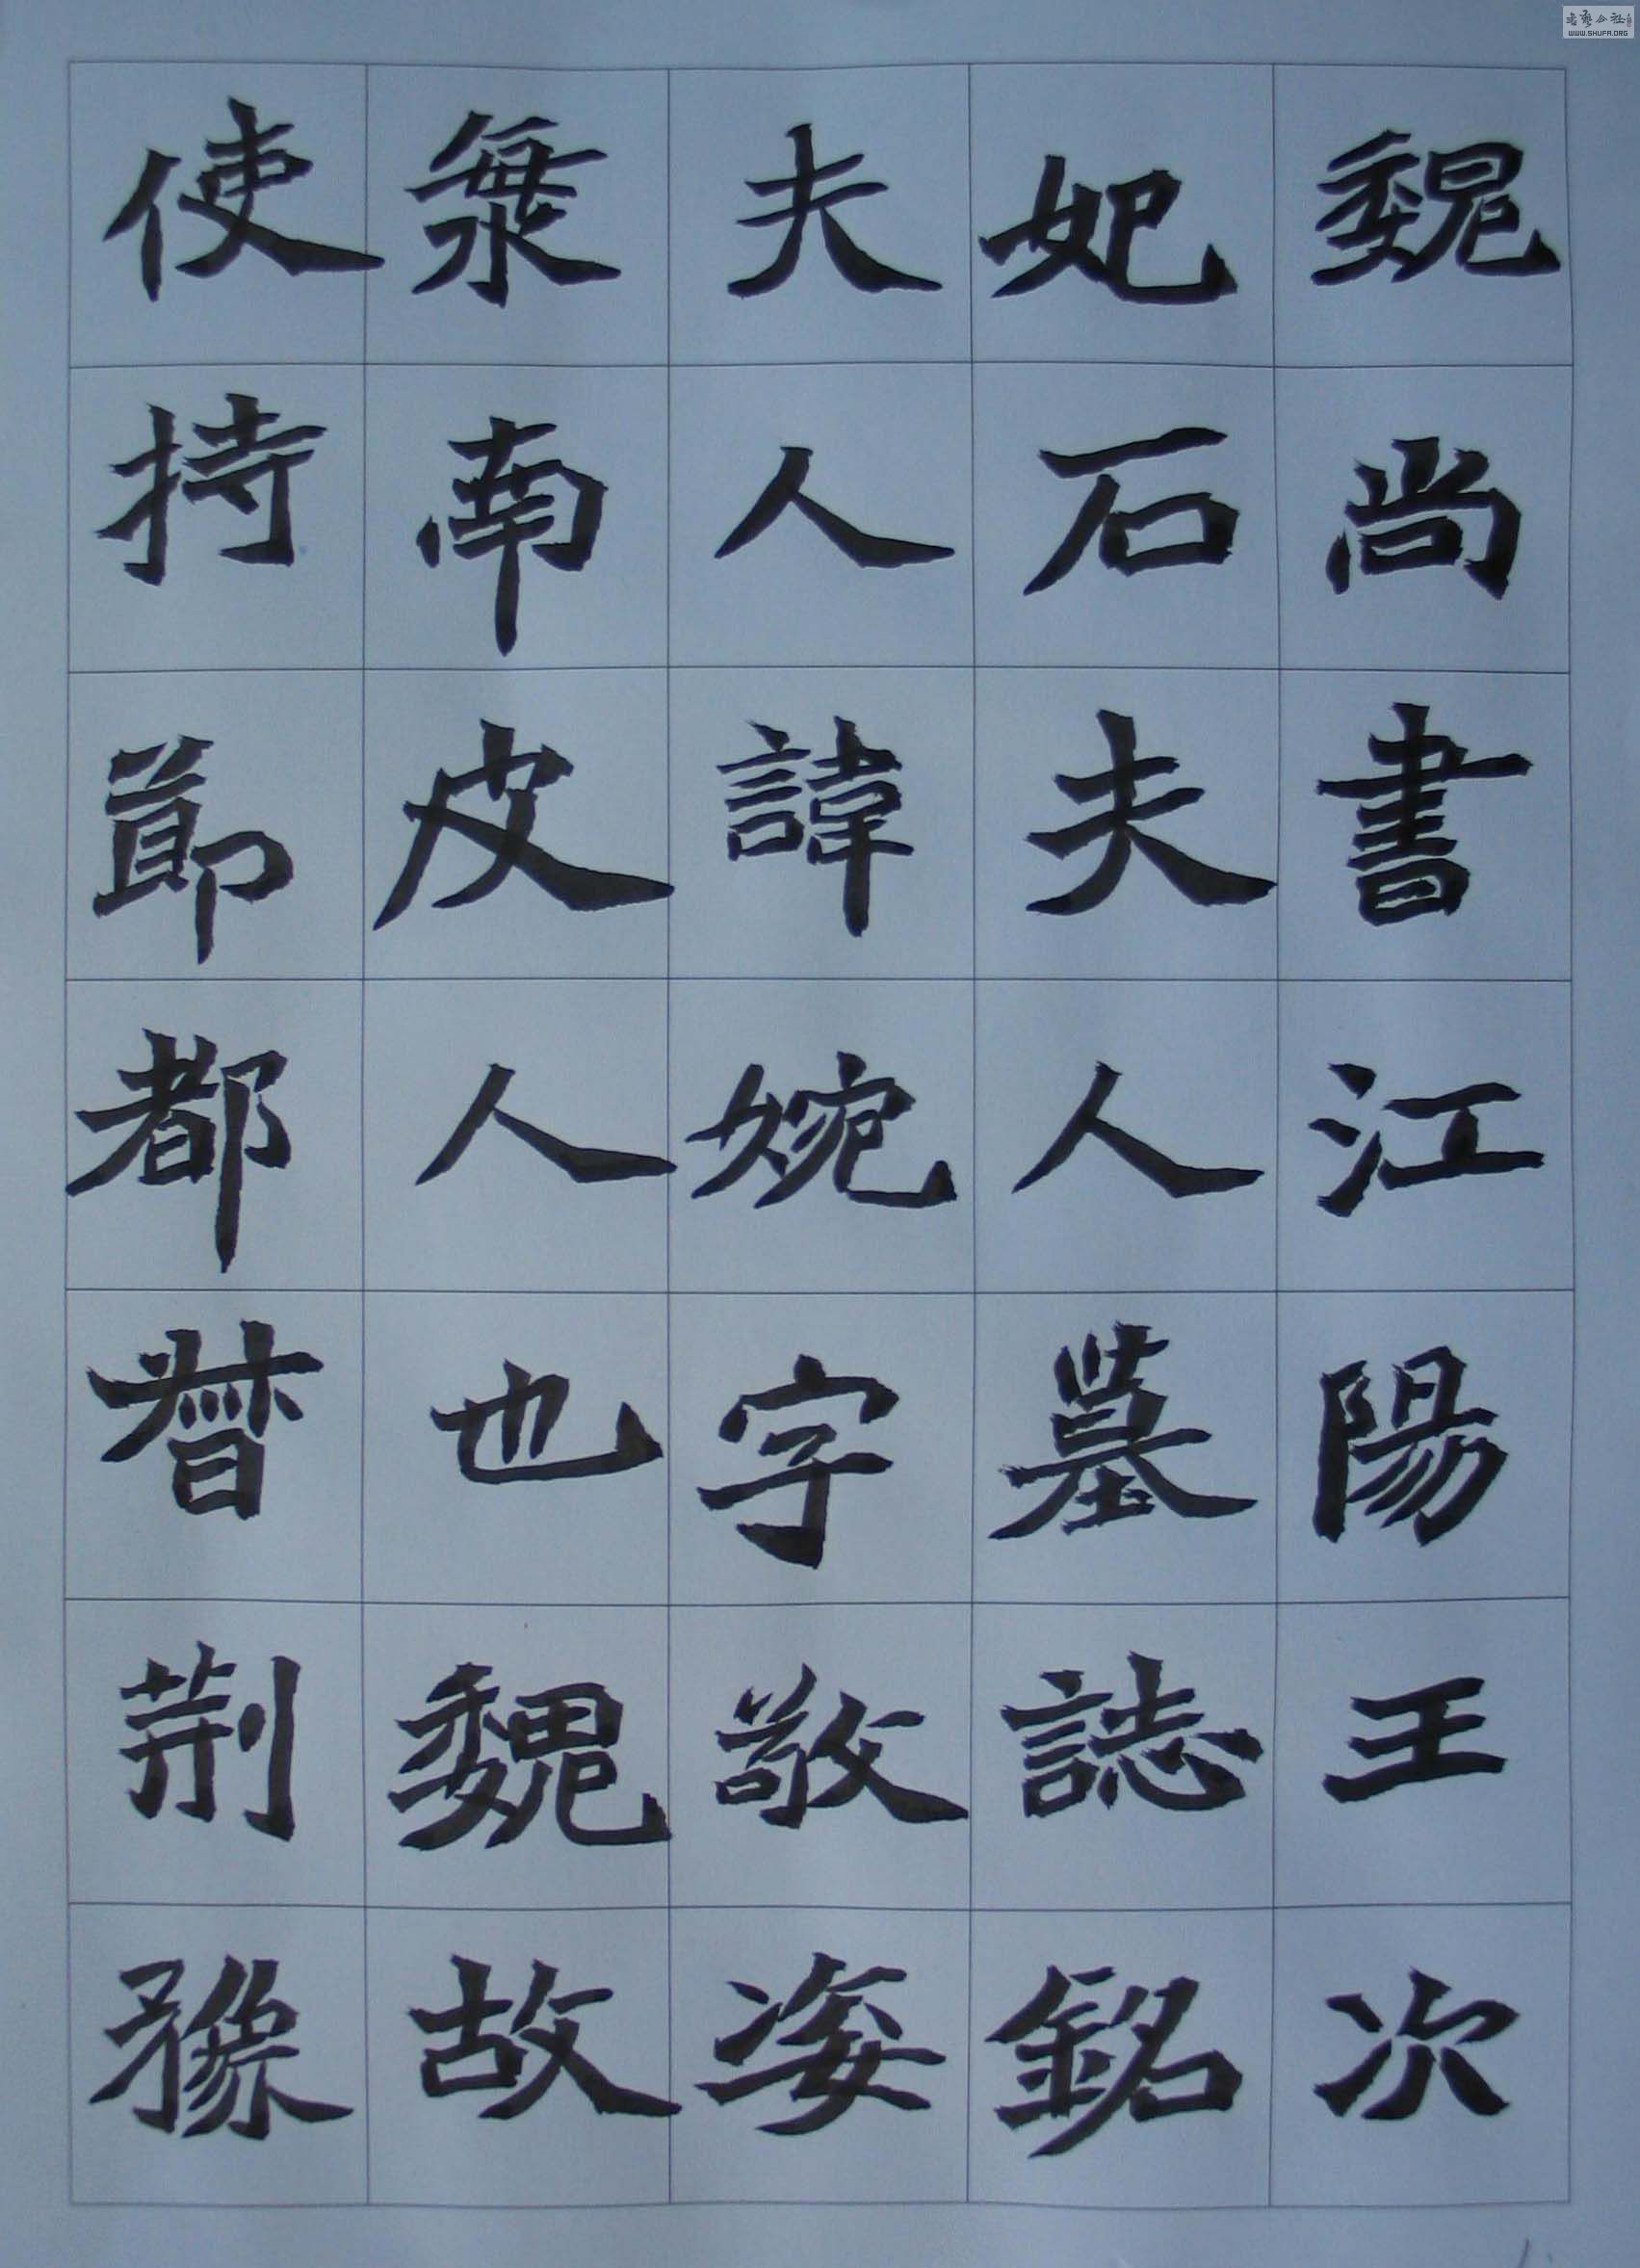 魏尚書江陽王次
妃石夫人墓誌銘
夫人諱婉字敬姿
勃南皮人也魏故
使持節都督荊豫
书艺公社
WWW.SHUFA.ORG